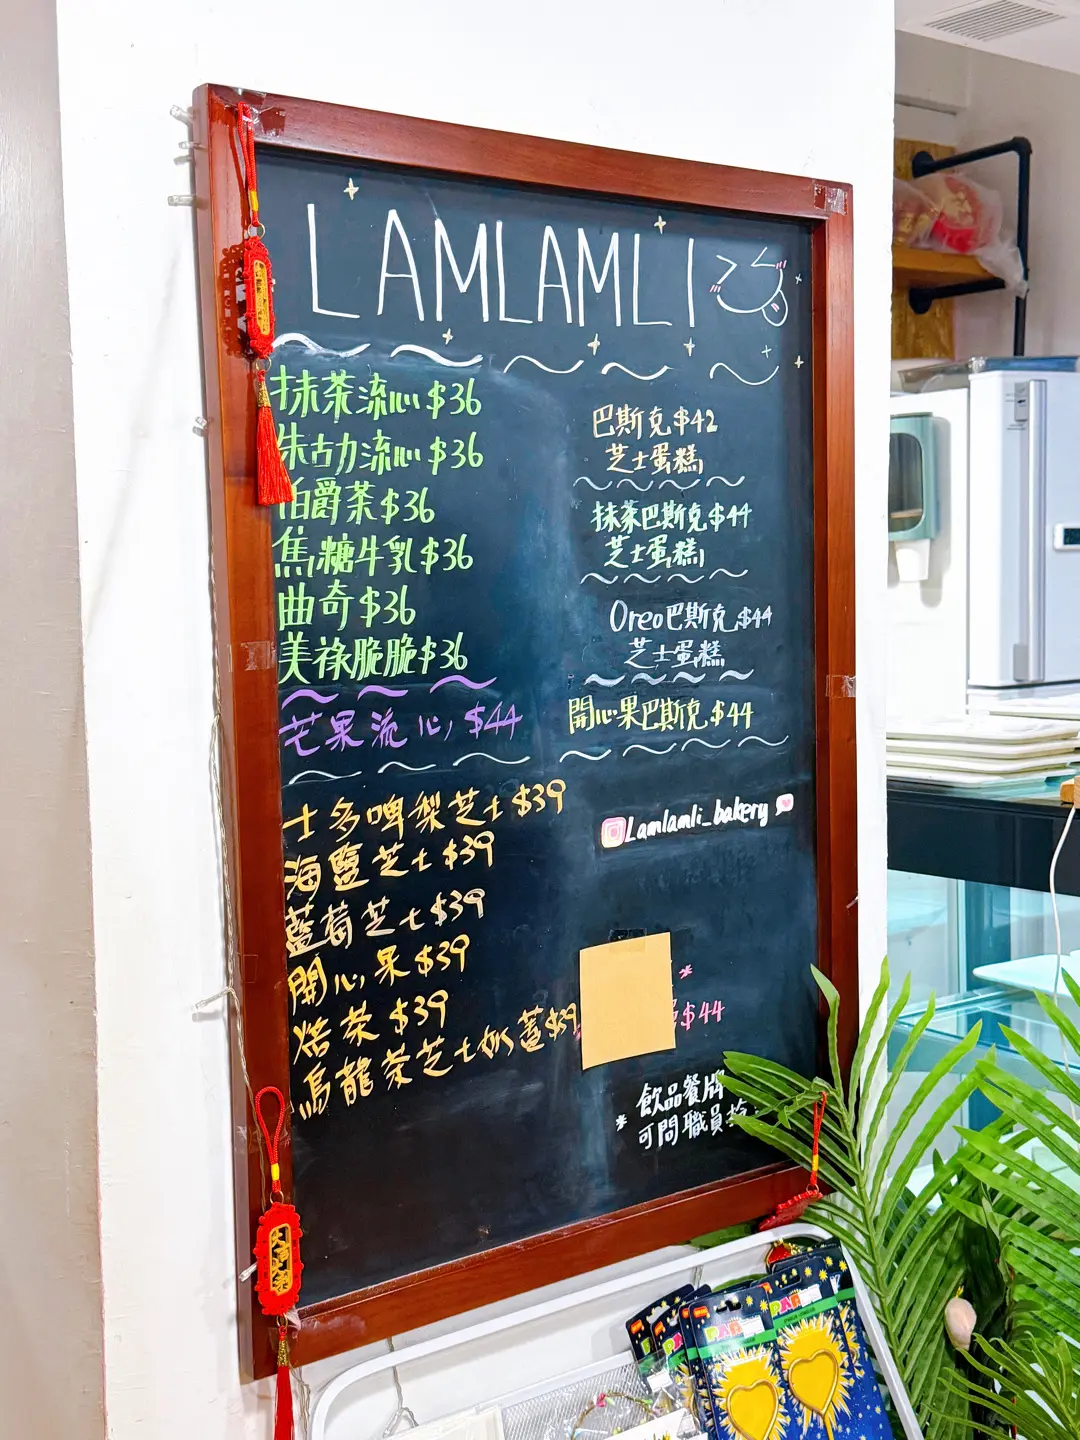 LAMLAMLI
抹茶流心$36
朱古力流心$36
伯爵茶$36
焦糖牛乳$36
曲奇$36
美祿脆脆$36
芒果流心$44
士多啤梨芝士$39
海鹽芝士$39
藍莓芝士$39
開心果$39
焙茶$39
烏龍茶芝士奶蓋$39
巴斯克$42
芝士蛋糕
抹茶巴斯克$44
芝士蛋糕
Oreo巴斯克$44
芝士蛋糕
開心果巴斯克$44
Lamlamli_bakery
$44
*飲品餐牌
可問職員